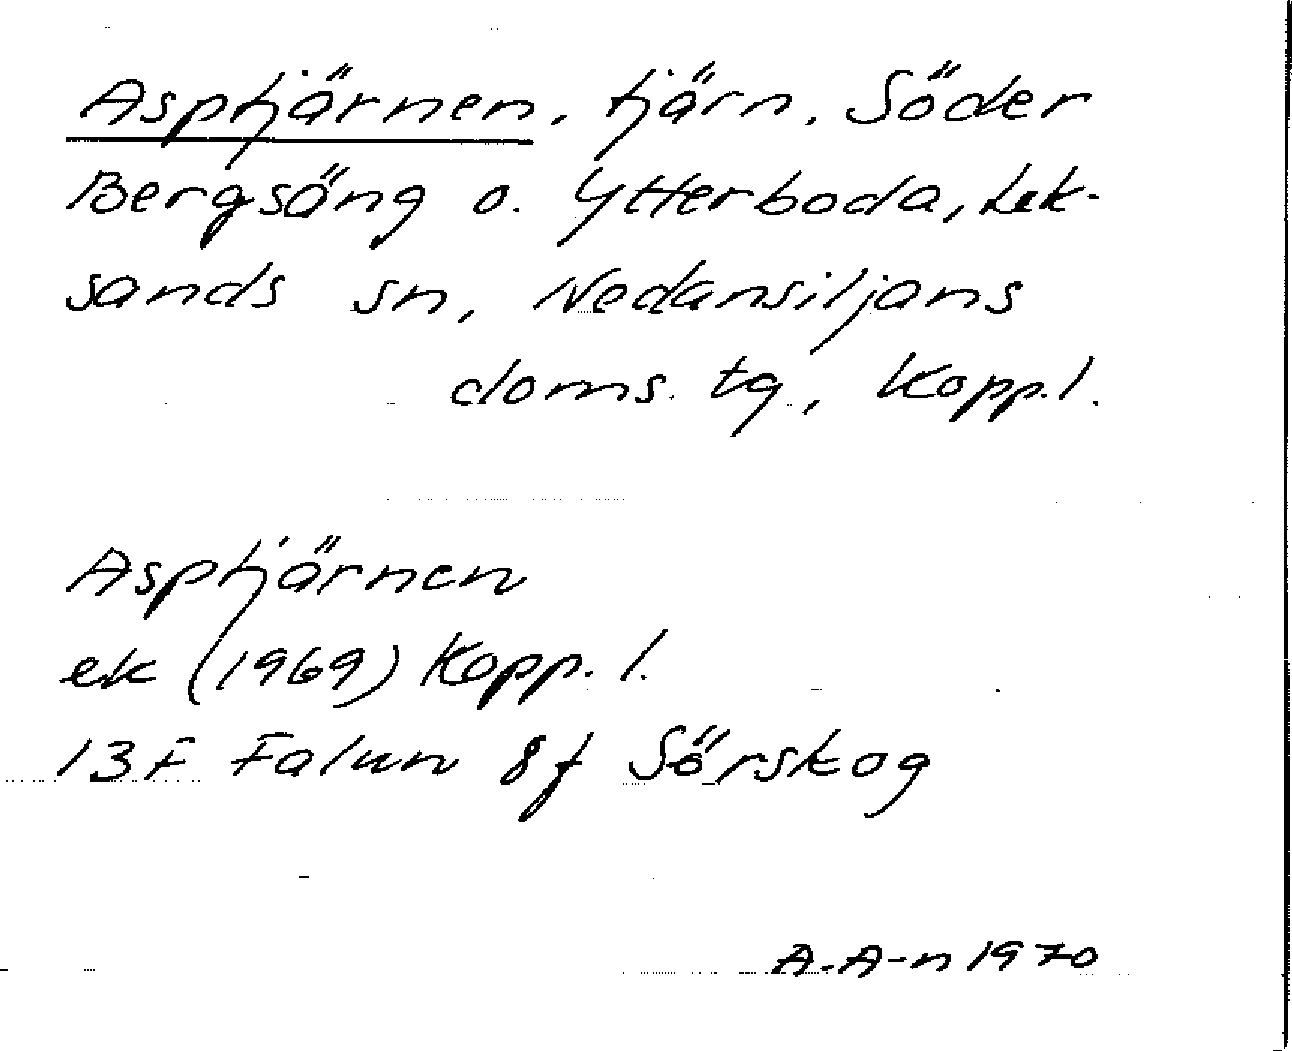 Asptjärnen, tjärn. Söder
Bergsäng o. Ytterboda, Lek-
sands sn, Nedansiljans
doms. tg., Kopp.l.
Asptjärnen
ek (1969) Kopp. l.
13F Falun 8f Sörskog
A.A-n 1970